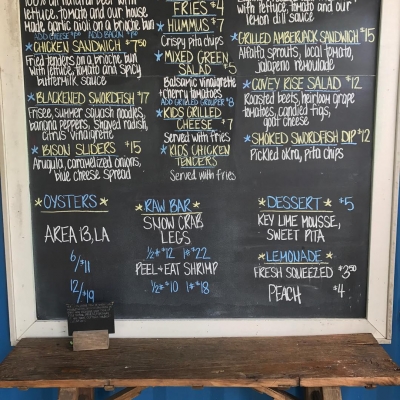 100% all natural beef with
lettuce, tomato and our house
made garlic aioli on a brioche bun
CHICKEN SANDWICH $7.50
Fried tenders on a brioche bun
with lettuce, tomato and spicy
buttermilk sauce
BLACKENED SWORDFISH $17
Frisee, summer squash noodles,
banana peppers, shaved radish,
citrus vinaigrette
BISON SLIDERS $15
Arugula, caramelized onions,
blue cheese spread
FRIES $4
HUMMUS $7
Crispy pita chips
MIXED GREEN
SALAD $5
Balsamic vinaigrette
cherry tomatoes
ADD GRILLED GROUPER $8
KIDS GRILLED
CHEESE $7
Served with fries
KIDS CHICKEN
TENDERS
Served with fries
with lettuce, tomato and our
lemon dill sauce
GRILLED AMBERJACK SANDWICH $15
Alfalfa sprouts, local tomato,
jalapeno remoulade
COVEY RISE SALAD $12
Roasted beets, heirloom grape
tomatoes, candied figs,
goat cheese
SMOKED SWORDFISH DIP $12
Pickled okra, pita chips
OYSTERS
AREA 13, LA
6/$11
12/$19
RAW BAR
SNOW CRAB
LEGS
1/2# $12 1# $22
PEEL & EAT SHRIMP
1/2# $10 1# $18
DESSERT $5
KEY LIME MOUSSE,
SWEET PITA
LEMONADE
FRESH SQUEEZED $3.50
PEACH $4